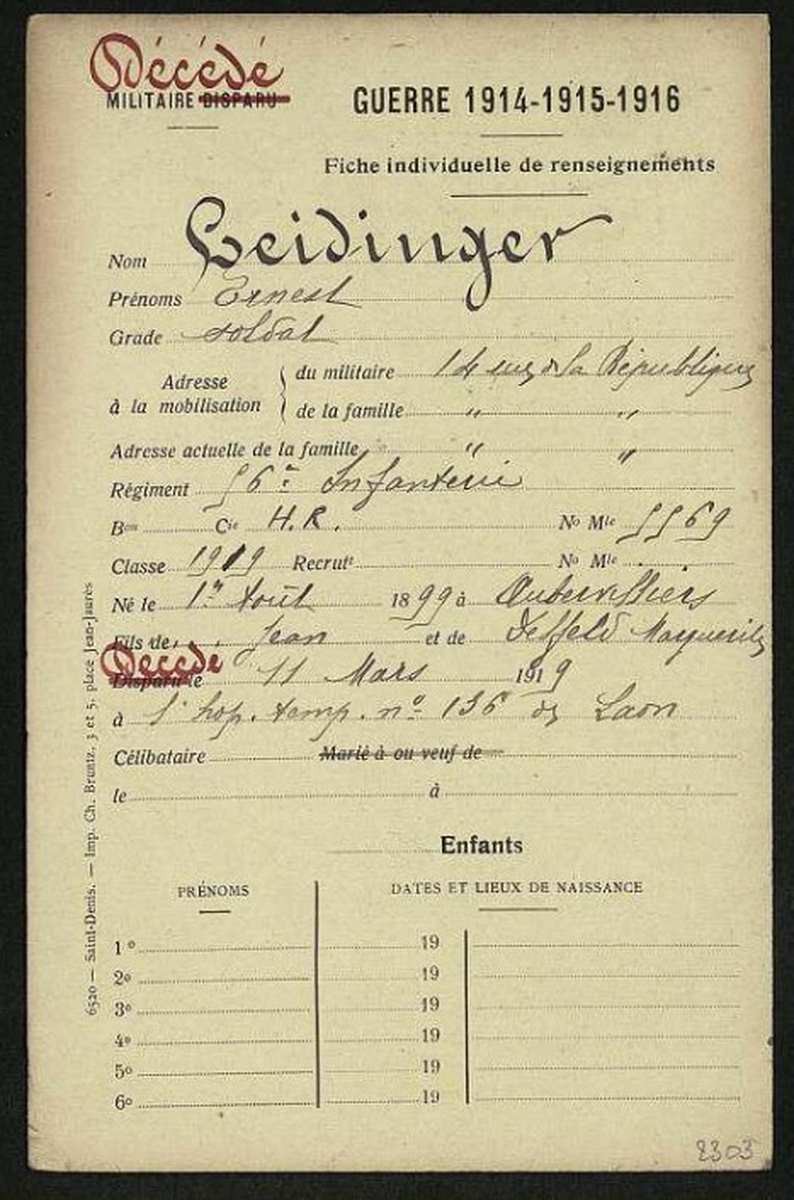 Décédé
MILITAIRE DISPARU
GUERRE 1914-1915-1916
Fiche individuelle de renseignements
Nom Leidinger
Prénoms Ernest
Grade soldat
Adresse à la mobilisation
du militaire 14 rue de la République
de la famille " "
Adresse actuelle de la famille " "
Régiment 56e Infanterie
Bon Cie H.R. No Mle 5569
Classe 1919 Recrutt No Mle
Né le 1er Août 1899 à Aubervilliers
Fils de Jean et de Marguerite
Décédé
Disparu le 11 Mars 1919
à l'hop. temp. no 136 de Laon
Célibataire Marié à ou veuf de
le à
Enfants
PRÉNOMS DATES ET LIEUX DE NAISSANCE
1o 19
2o 19
3o 19
4o 19
5o 19
6o 19
6520 — Saint-Denis. — Imp. Ch. Bruntz, 3 et 5, place Jean-Jaurès
2303